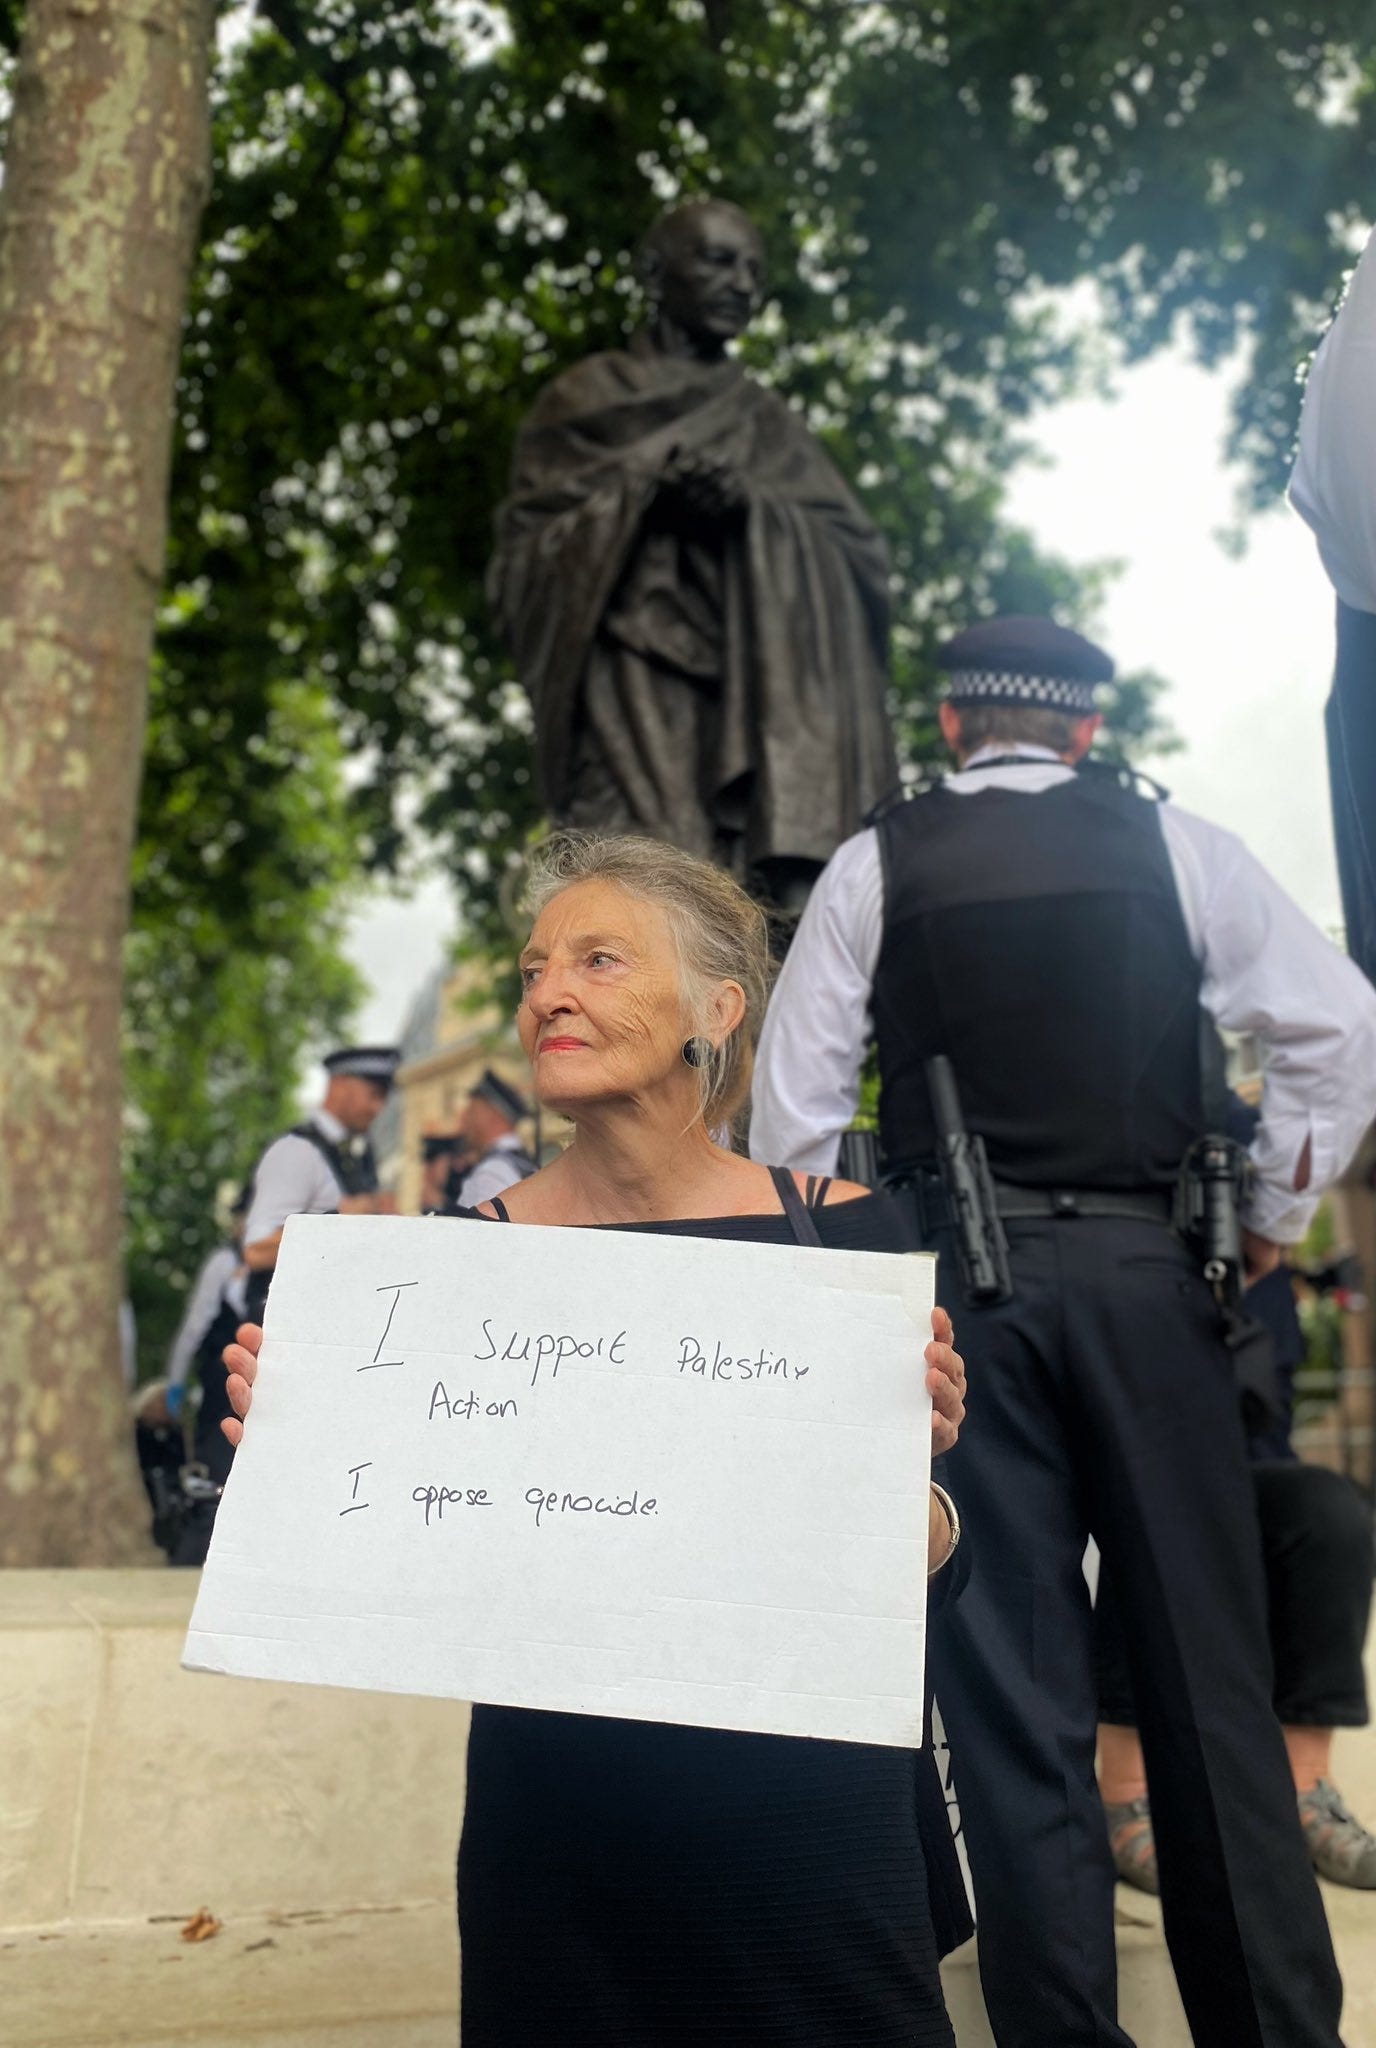 I support Palestine
Action
I oppose genocide.